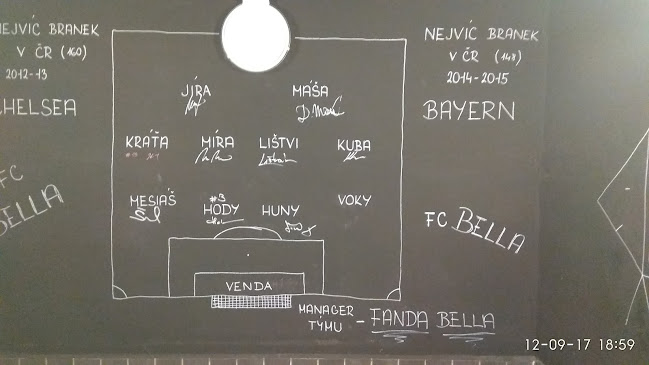 NEJVÍC BRANEK
V ČR (160)
2012-13
CHELSEA
FC
BELLA
JÍRA
MÁŠA
KRÁŤA
MÍRA
LIŠTVI
KUBA
MESIÁŠ
#3
HODY
HUNY
VOKY
VENDA
MANAGER
TÝMU - FANDA BELLA
NEJVÍC BRANEK
V ČR (148)
2014-2015
BAYERN
FC BELLA
12-09-17 18:59